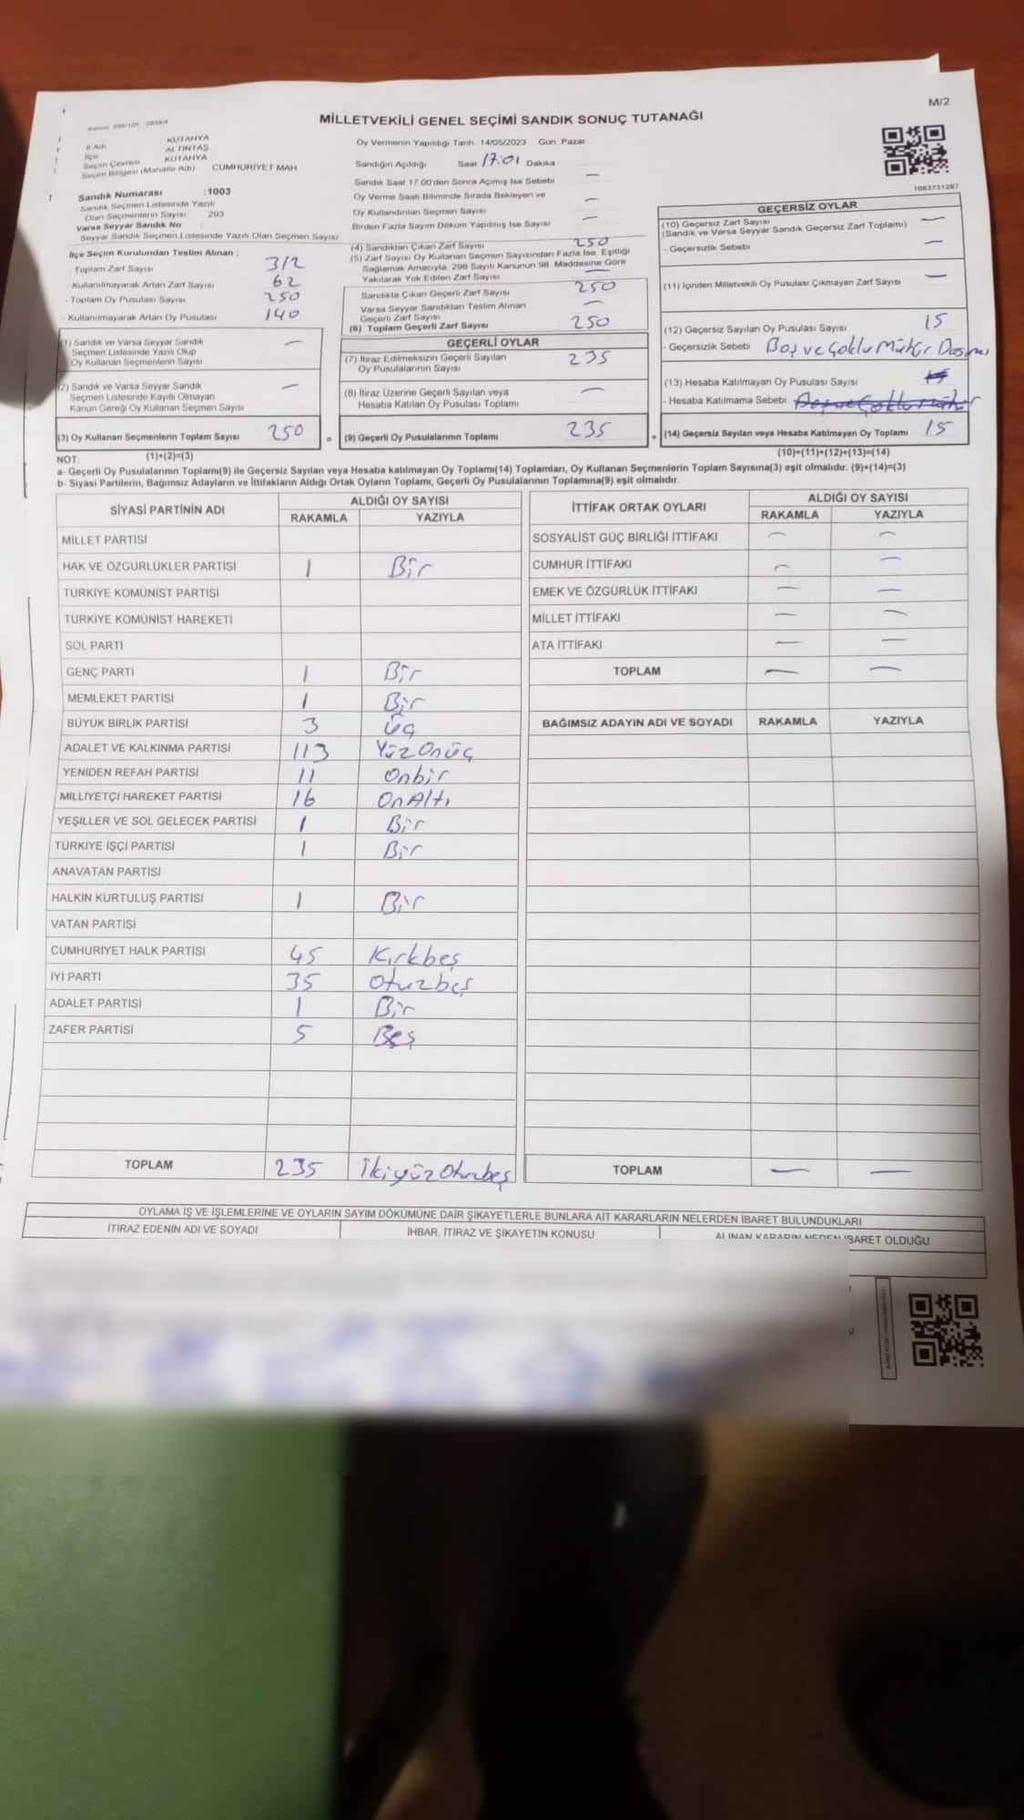 M/2
MİLLETVEKİLİ GENEL SEÇİMİ SANDIK SONUÇ TUTANAĞI
İl Adı KÜTAHYA
İlçe ALTINTAŞ
Seçim Çevresi KÜTAHYA
Seçim Bölgesi (Mahalle Adı) CUMHURİYET MAH
Sandık Numarası :1003
Sandık Seçmen Listesinde Yazılı
Olan Seçmenlerin Sayısı 293
Varsa Seyyar Sandık No
Seyyar Sandık Seçmen Listesinde Yazılı Olan Seçmen Sayısı
İlçe Seçim Kurulundan Teslim Alınan ;
- Toplam Zarf Sayısı 312
- Kullanılmayarak Artan Zarf Sayısı 62
- Toplam Oy Pusulası Sayısı 250
- Kullanılmayarak Artan Oy Pusulası 140
(1) Sandık ve Varsa Seyyar Sandık
Seçmen Listesinde Yazılı Olup
Oy Kullanan Seçmenlerin Sayısı —
(2) Sandık ve Varsa Seyyar Sandık
Seçmen Listesinde Kayıtlı Olmayan
Kanun Gereği Oy Kullanan Seçmen Sayısı —
(3) Oy Kullanan Seçmenlerin Toplam Sayısı 250
(1)+(2)=(3)
Oy Vermenin Yapıldığı Tarih 14/05/2023 Gün Pazar
Sandığın Açıldığı Saat 17:01 Dakika
Sandık Saat 17:00'den Sonra Açılmış İse Sebebi —
Oy Verme Saati Bitiminde Sırada Bekleyen ve
Oy Kullandırılan Seçmen Sayısı —
Birden Fazla Sayım Döküm Yapılmış İse Sayısı —
(4) Sandıktan Çıkan Zarf Sayısı 250
(5) Zarf Sayısı Oy Kullanan Seçmen Sayısından Fazla İse, Eşitliği
Sağlamak Amacıyla, 298 Sayılı Kanunun 98. Maddesine Göre
Yakılarak Yok Edilen Zarf Sayısı —
Sandıkta Çıkan Geçerli Zarf Sayısı 250
Varsa Seyyar Sandıktan Teslim Alınan
Geçerli Zarf Sayısı —
(6) Toplam Geçerli Zarf Sayısı 250
GEÇERLİ OYLAR
(7) İtiraz Edilmeksizin Geçerli Sayılan
Oy Pusulalarının Sayısı 235
(8) İtiraz Üzerine Geçerli Sayılan veya
Hesaba Katılan Oy Pusulası Toplamı —
(9) Geçerli Oy Pusulalarının Toplamı 235
1063731287
GEÇERSİZ OYLAR
(10) Geçersiz Zarf Sayısı —
(Sandık ve Varsa Seyyar Sandık Geçersiz Zarf Toplamı)
- Geçersizlik Sebebi —
(11) İçinden Milletvekili Oy Pusulası Çıkmayan Zarf Sayısı —
(12) Geçersiz Sayılan Oy Pusulası Sayısı 15
- Geçersizlik Sebebi Boş ve Çoklu Mühür
(13) Hesaba Katılmayan Oy Pusulası Sayısı 15
- Hesaba Katılmama Sebebi
(14) Geçersiz Sayılan veya Hesaba Katılmayan Oy Toplamı 15
(10)+(11)+(12)+(13)=(14)
NOT:
a- Geçerli Oy Pusulalarının Toplamı(9) ile Geçersiz Sayılan veya Hesaba katılmayan Oy Toplamı(14) Toplamları, Oy Kullanan Seçmenlerin Toplam Sayısına(3) eşit olmalıdır. (9)+(14)=(3)
b- Siyasi Partilerin, Bağımsız Adayların ve İttifakların Aldığı Ortak Oyların Toplamı, Geçerli Oy Pusulalarının Toplamına(9) eşit olmalıdır.
SİYASİ PARTİNİN ADI ALDIĞI OY SAYISI
RAKAMLA YAZIYLA
MİLLET PARTİSİ
HAK VE ÖZGÜRLÜKLER PARTİSİ 1 Bir
TÜRKİYE KOMÜNİST PARTİSİ
TÜRKİYE KOMÜNİST HAREKETİ
SOL PARTİ
GENÇ PARTİ 1 Bir
MEMLEKET PARTİSİ 1 Bir
BÜYÜK BİRLİK PARTİSİ 3 Üç
ADALET VE KALKINMA PARTİSİ 113 Yüz Onüç
YENİDEN REFAH PARTİSİ 11 Onbir
MİLLİYETÇİ HAREKET PARTİSİ 16 OnAltı
YEŞİLLER VE SOL GELECEK PARTİSİ 1 Bir
TÜRKİYE İŞÇİ PARTİSİ 1 Bir
ANAVATAN PARTİSİ
HALKIN KURTULUŞ PARTİSİ 1 Bir
VATAN PARTİSİ
CUMHURİYET HALK PARTİSİ 45 Kırkbeş
İYİ PARTİ 35 Otuzbeş
ADALET PARTİSİ 1 Bir
ZAFER PARTİSİ 5 Beş
TOPLAM 235 İkiyüzOtuzbeş
İTTİFAK ORTAK OYLARI ALDIĞI OY SAYISI
RAKAMLA YAZIYLA
SOSYALİST GÜÇ BİRLİĞİ İTTİFAKI — —
CUMHUR İTTİFAKI — —
EMEK VE ÖZGÜRLÜK İTTİFAKI — —
MİLLET İTTİFAKI — —
ATA İTTİFAKI — —
TOPLAM — —
BAĞIMSIZ ADAYIN ADI VE SOYADI RAKAMLA YAZIYLA
TOPLAM — —
OYLAMA İŞ VE İŞLEMLERİNE VE OYLARIN SAYIM DÖKÜMÜNE DAİR ŞİKAYETLERLE BUNLARA AİT KARARLARIN NELERDEN İBARET BULUNDUKLARI
İTİRAZ EDENİN ADI VE SOYADI İHBAR, İTİRAZ VE ŞİKAYETİN KONUSU ALINAN KARARIN NEDEN İBARET OLDUĞU